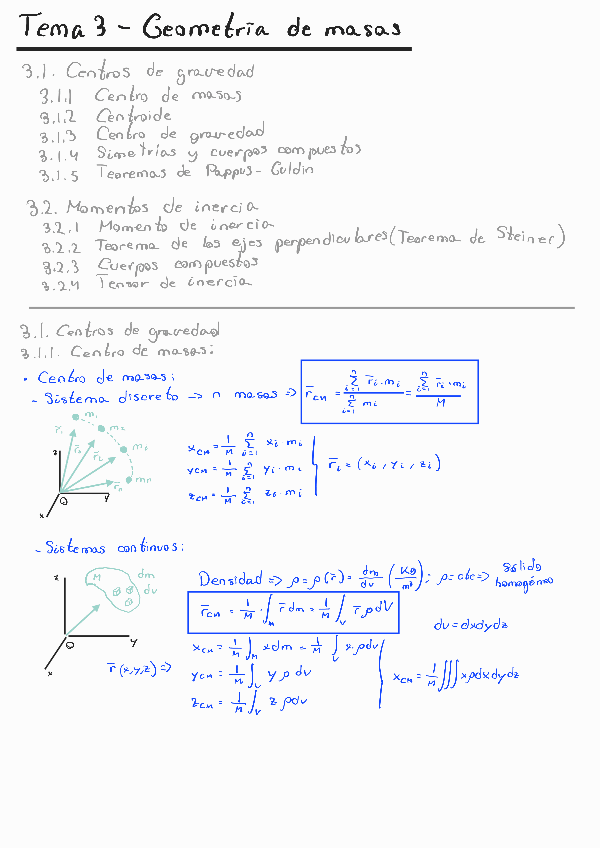 Tema 3 - Geometría de masas
3.1. Centros de gravedad
3.1.1 Centro de masas
3.1.2 Centroide
3.1.3 Centro de gravedad
3.1.4 Simetrías y cuerpos compuestos
3.1.5 Teoremas de Pappus-Guldin
3.2. Momentos de inercia
3.2.1 Momento de inercia
3.2.2 Teorema de los ejes perpendiculares (Teorema de Steiner)
3.2.3 Cuerpos compuestos
3.2.4 Tensor de inercia
3.1. Centros de gravedad
3.1.1. Centro de masas:
• Centro de masas:
- Sistema discreto → n masas => r̄CM = Σ(i=1..n) r̄i·mi / Σ(i=1..n) mi = Σ(i=1..n) r̄i·mi / M
xCM = 1/M Σ(i=1..n) xi mi
yCM = 1/M Σ(i=1..n) yi·mi
zCM = 1/M Σ(i=1..n) zi·mi
r̄i = (xi, yi, zi)
z
y
x
O
- Sistemas continuos:
M dm
dv
z
y
x
O
r̄(x,y,z) =>
Densidad => ρ = ρ(r̄) = dm/dv (Kg/m³); ρ = cte => sólido
homogéneo
r̄CM = 1/M · ∫M r̄ dm = 1/M ∫V r̄ ρdV
dv = dxdydz
xCM = 1/M ∫M xdm = 1/M ∫V x·ρdv
yCM = 1/M ∫V y ρ dv
zCM = 1/M ∫V z ρdv
xCM = 1/M ∭ xρdxdydz